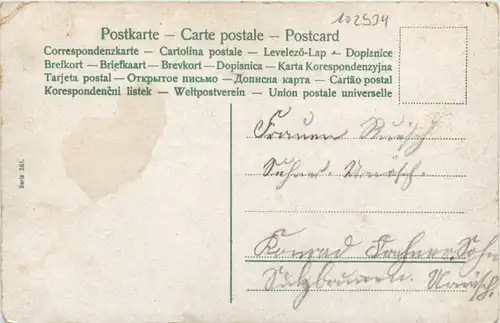 102934
Postkarte — Carte postale — Postcard
Correspondenzkarte — Cartolina postale — Levelező-Lap — Dopisnice
Brefkort — Briefkaart — Brevkort — Dopisnica — Karta Korespondenzyjna
Tarjeta postal — Открытое письмо — Дописна карта — Cartão postal
Korespondenční listek — Weltpostverein — Union postale universelle
Serie 351.
Frauen
Konrad